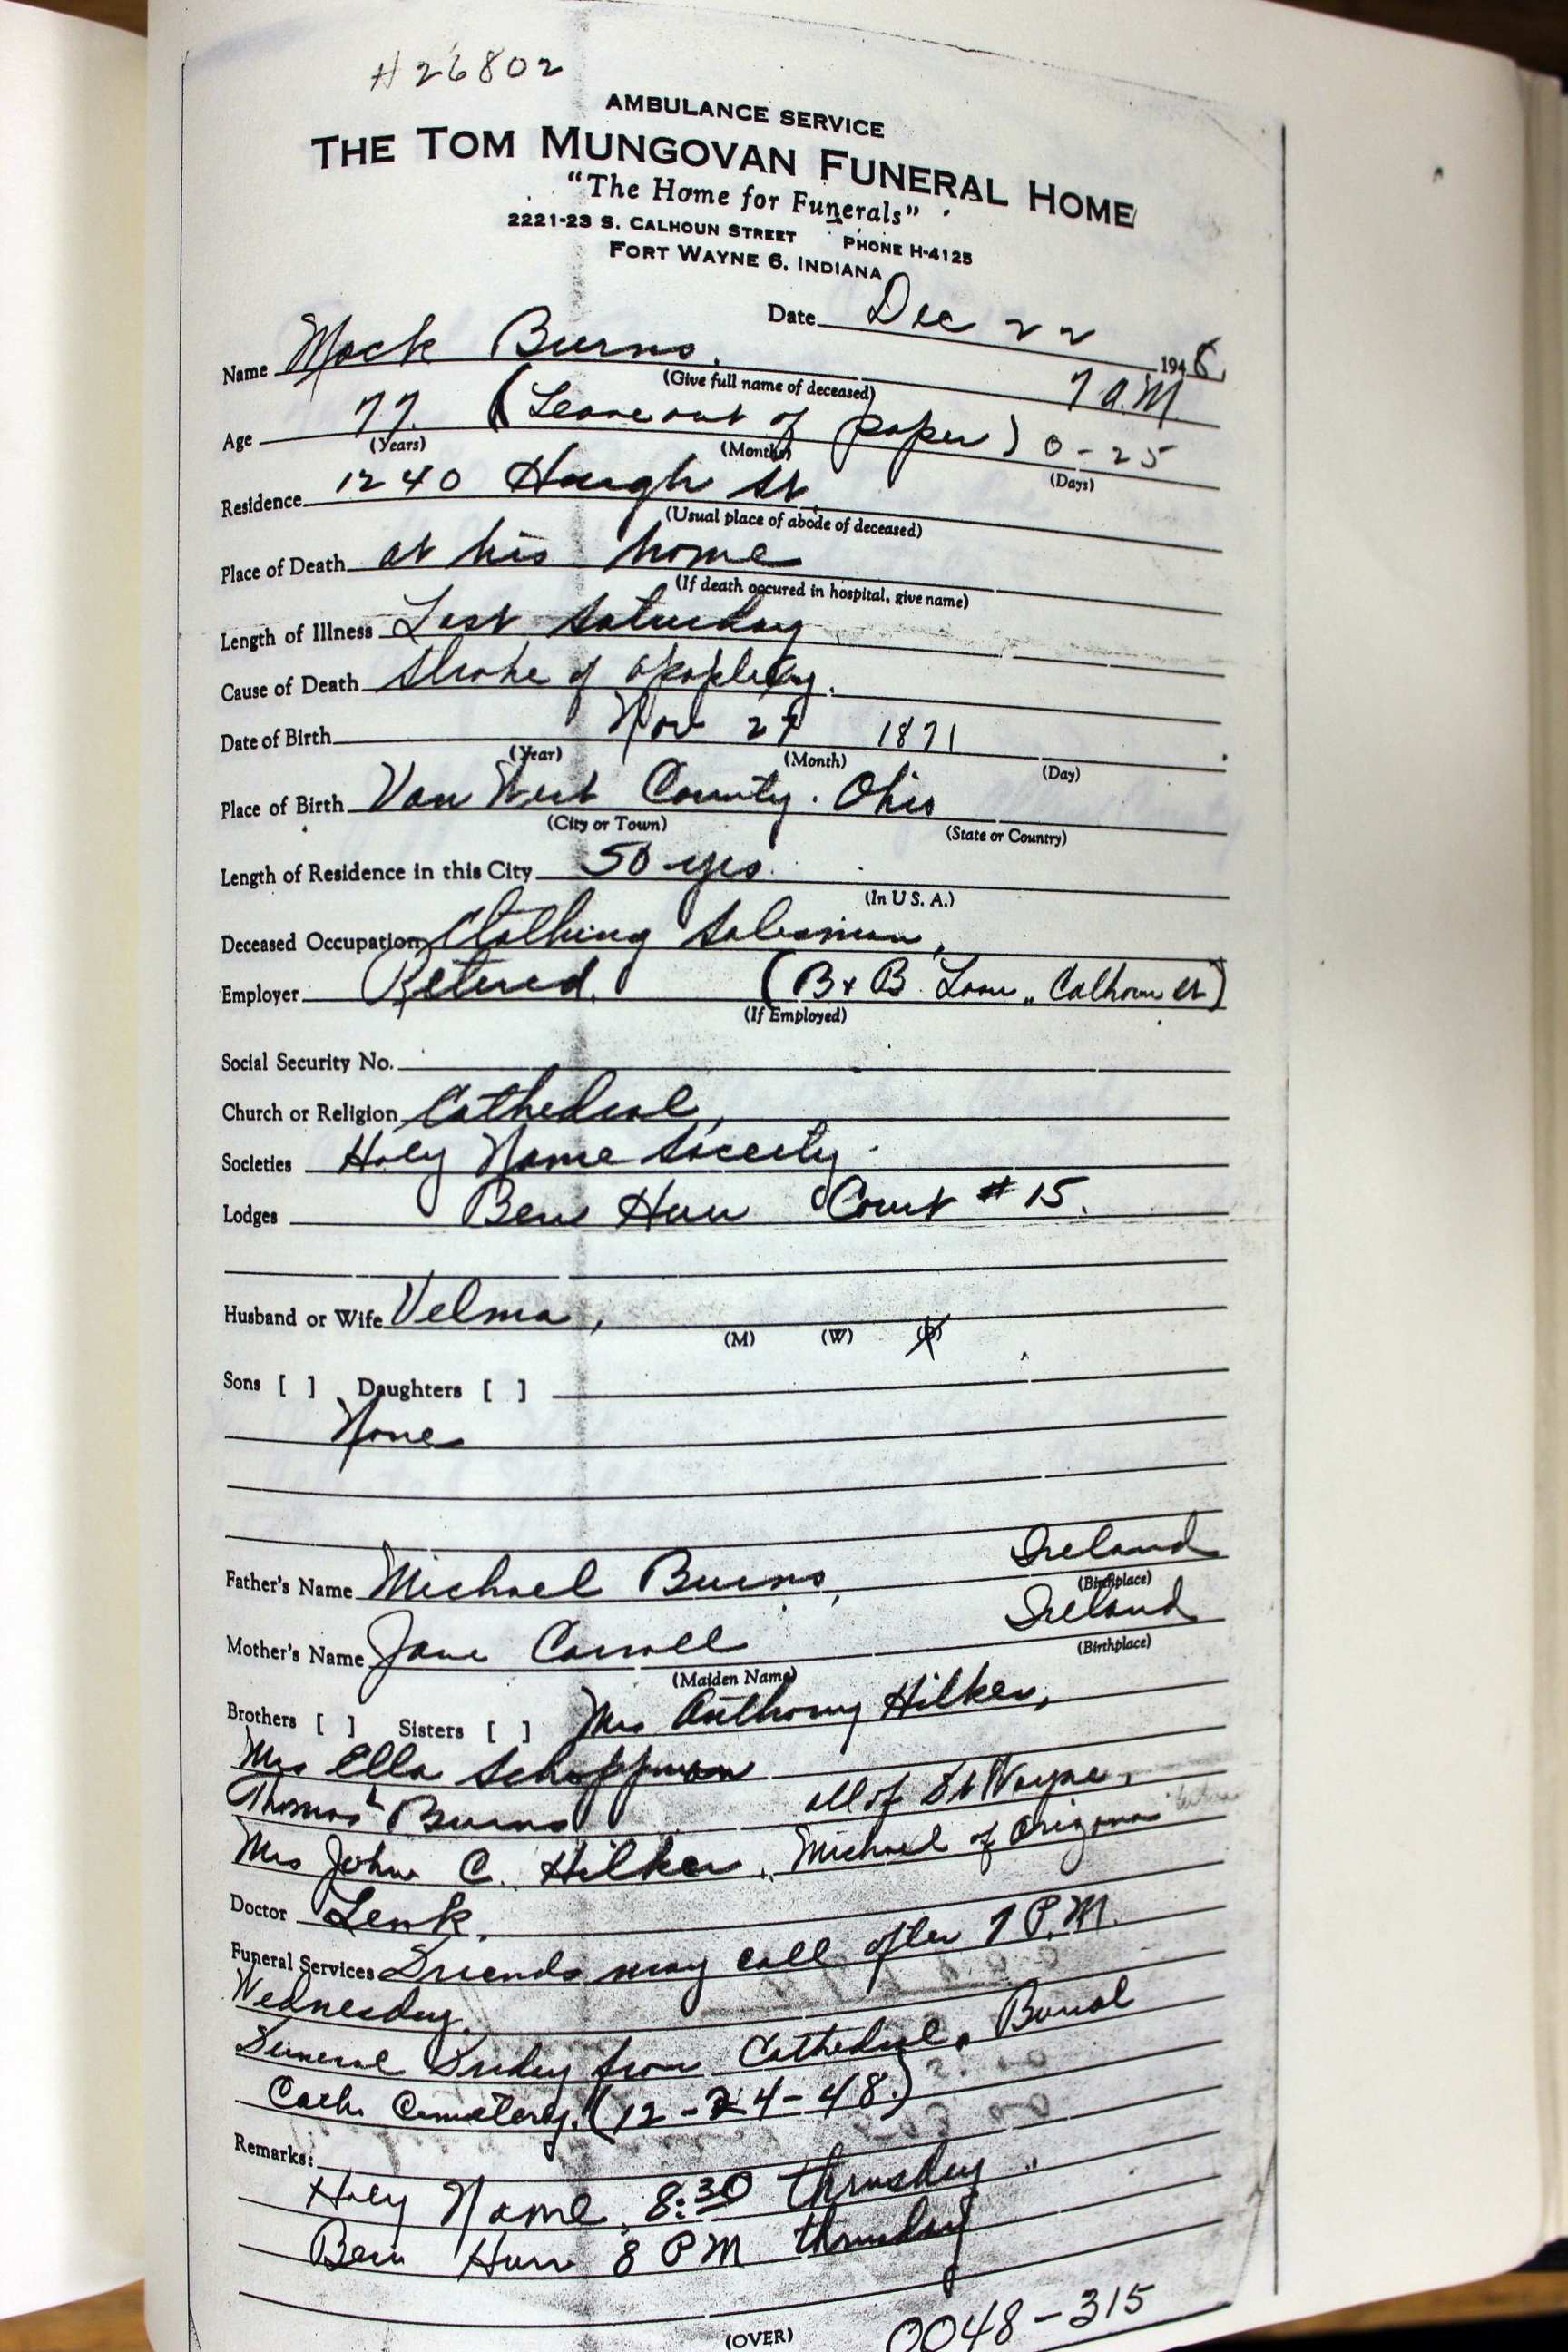 #26802
AMBULANCE SERVICE
THE TOM MUNGOVAN FUNERAL HOME
"The Home for Funerals"
2221-23 S. CALHOUN STREET PHONE H-4125
FORT WAYNE 6, INDIANA
Date Dec 22 1948
Name Mack Burns. 7 A.M
(Give full name of deceased)
Age 77. (Leave out of paper) 0-25
(Years) (Months) (Days)
Residence 1240 Haugh St.
(Usual place of abode of deceased)
Place of Death at his home
(If death occured in hospital, give name)
Length of Illness Last Saturday
Cause of Death Stroke of apoplexy.
Date of Birth Nov 27 1871
(Year) (Month) (Day)
Place of Birth Van Wert County. Ohio
(City or Town) (State or Country)
Length of Residence in this City 50 yrs.
(In U S. A.)
Deceased Occupation Clothing Salesman,
Employer Retired. (B & B Loan,, Calhoun St)
(If Employed)
Social Security No.
Church or Religion Cathedral,
Societies Holy Name Society.
Lodges Ben Hur Court #15.
Husband or Wife Velma,
(M) (W)
Sons [ ] Daughters [ ]
None
Father's Name Michael Burns, Ireland
(Birthplace)
Mother's Name Jane Carroll Ireland
(Maiden Name) (Birthplace)
Brothers [ ] Sisters [ ] Mrs Anthony Hilker,
Mrs Ella Schoppman
Thomas Burns all of Ft Wayne,
Mrs John C. Hilker, Michael of Arizona
Doctor Lenk.
Funeral Services Friends may call after 7 P.M.
Wednesday.
Funeral Friday from Cathedral. Burial
Cath. Cemetery. (12-24-48.)
Remarks:
Holy Name, 8:30 thrusday,,
Ben Hur 8 PM thrusday
(OVER) 0048-315